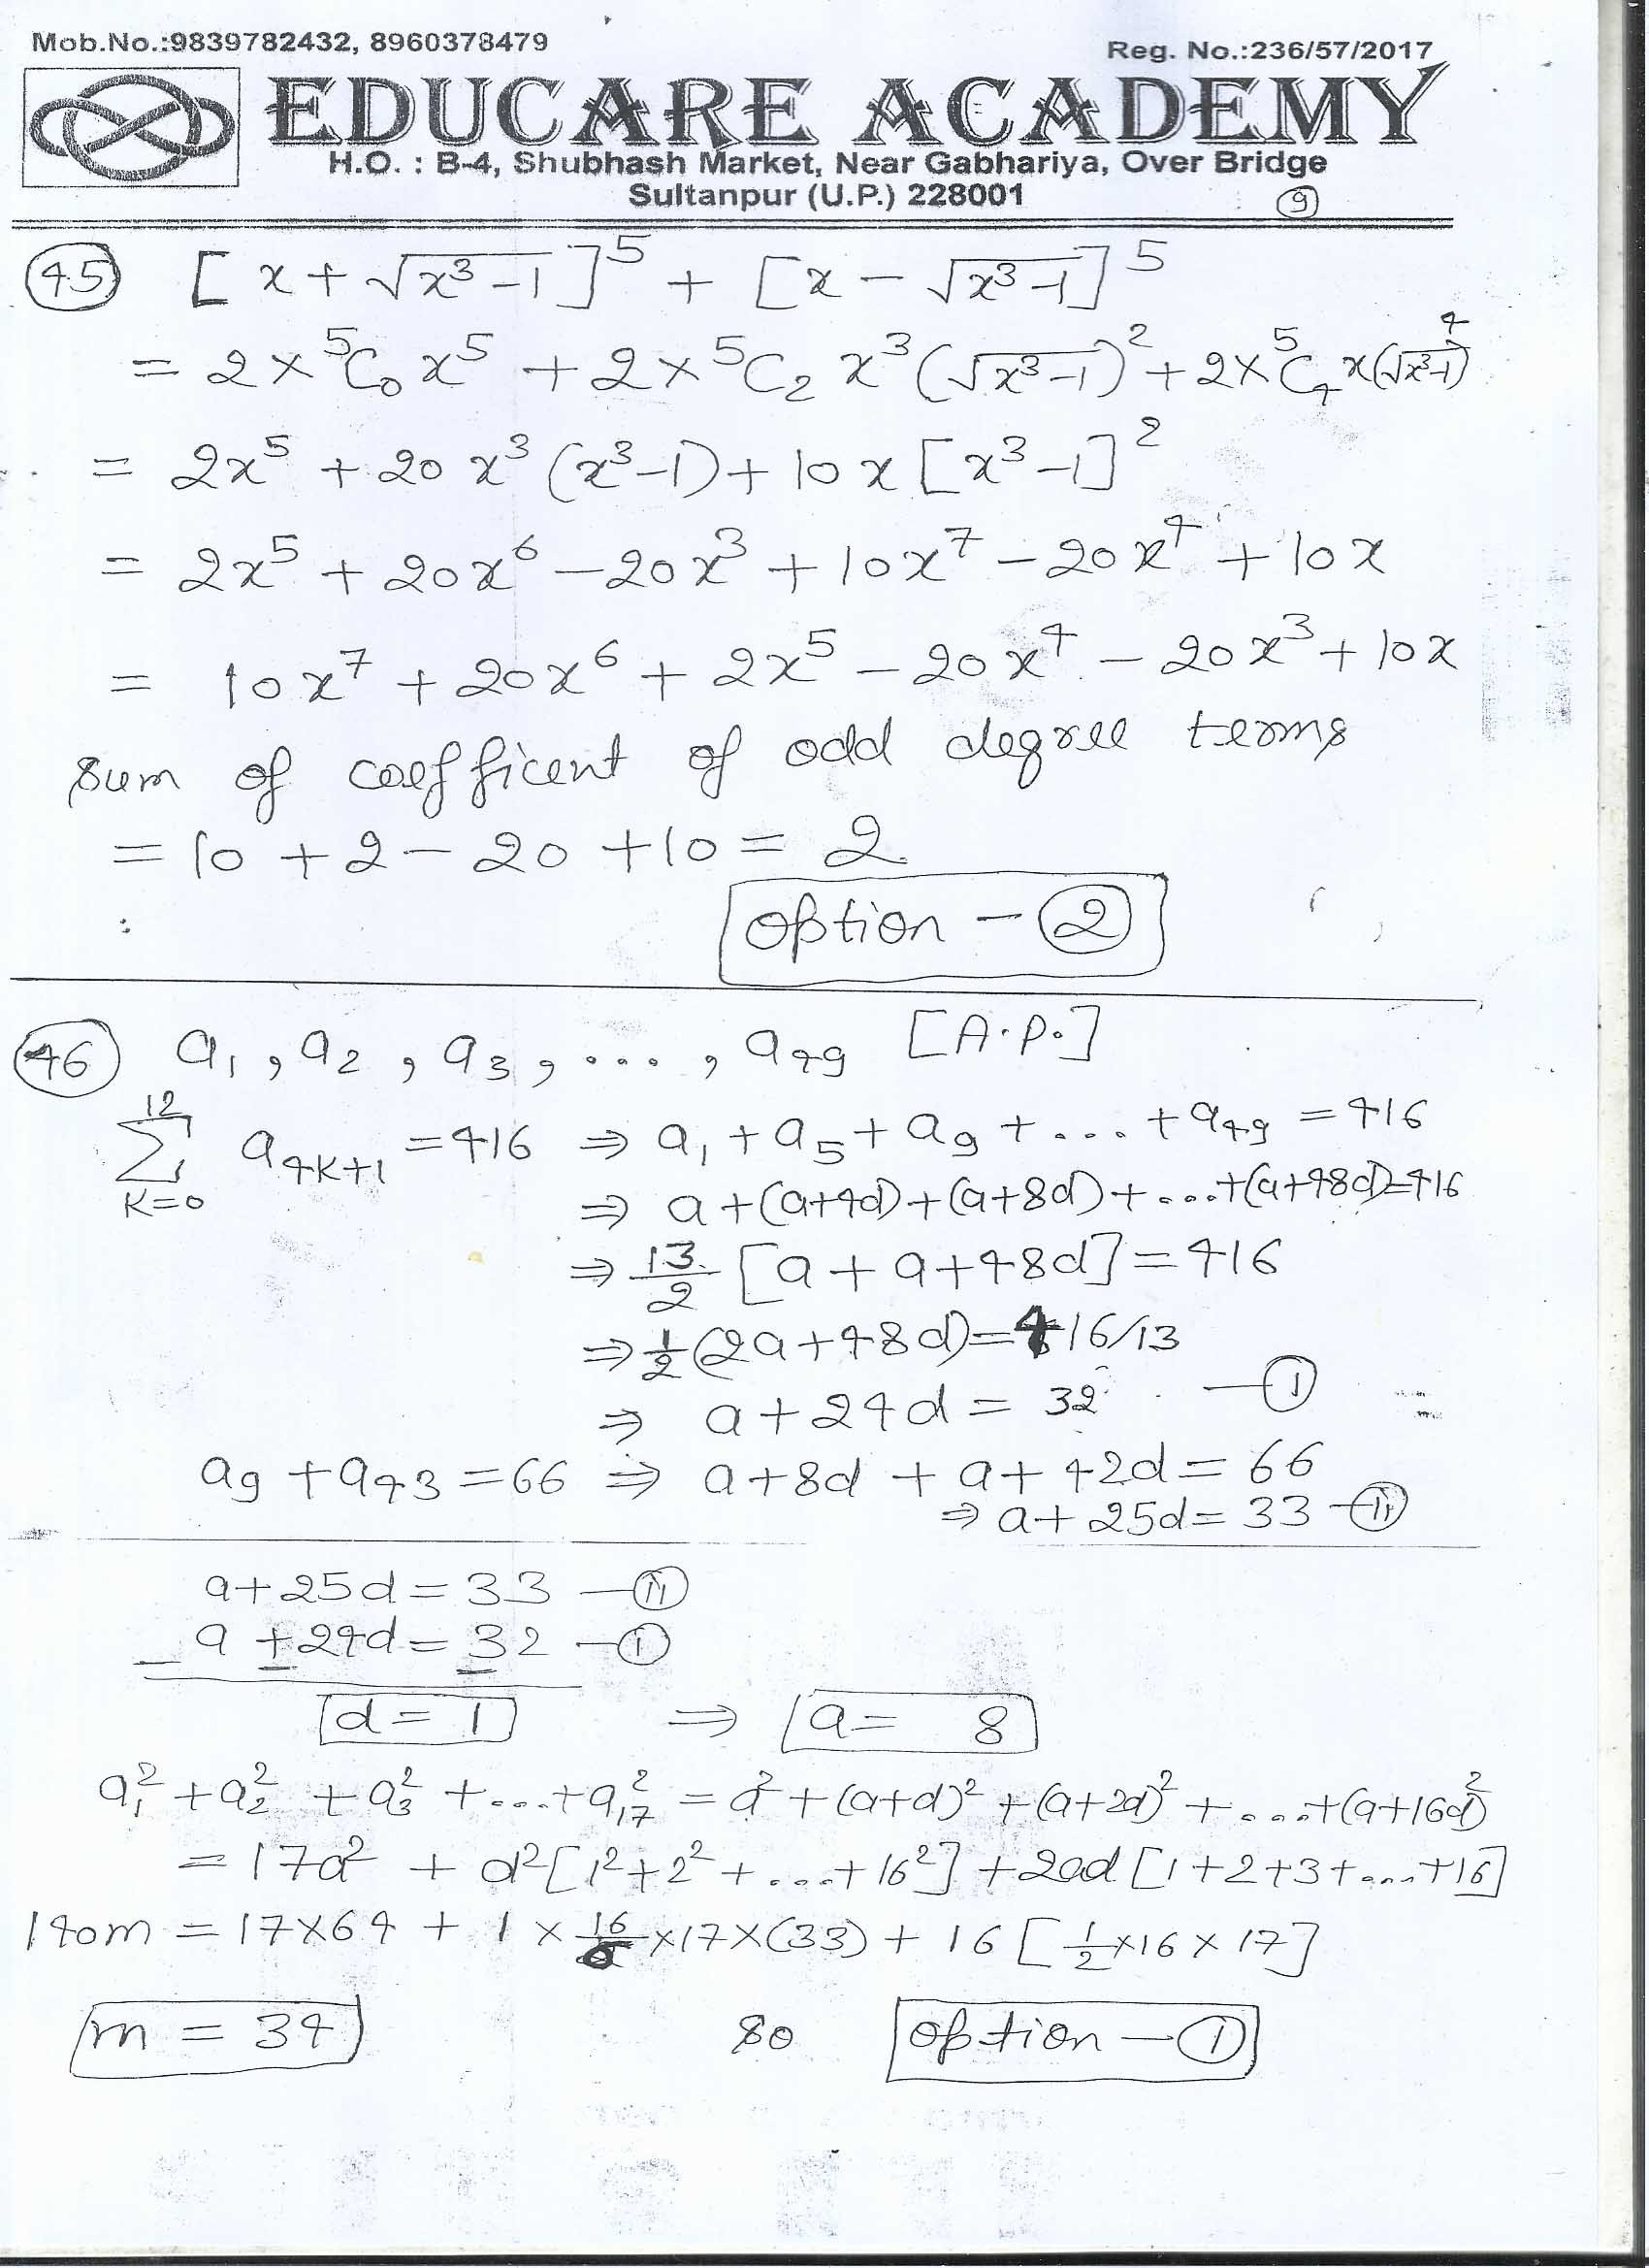 Mob.No.:9839782432, 8960378479
Reg. No.:236/57/2017
EDUCARE ACADEMY
H.O. : B-4, Shubhash Market, Near Gabhariya, Over Bridge
Sultanpur (U.P.) 228001
9
45 [x + √(x³-1)]⁵ + [x - √(x³-1)]⁵
= 2 × ⁵C₀ x⁵ + 2 × ⁵C₂ x³ (√(x³-1))² + 2 × ⁵C₄ x (√(x³-1))⁴
= 2x⁵ + 20 x³ (x³-1) + 10 x [x³-1]²
= 2x⁵ + 20x⁶ - 20x³ + 10x⁷ - 20x⁴ + 10x
= 10x⁷ + 20x⁶ + 2x⁵ - 20x⁴ - 20x³ + 10x
sum of coefficent of odd degree terms
= 10 + 2 - 20 + 10 = 2
option - 2
46 a₁, a₂, a₃, ..., a₄₉ [A.P.]
∑_{K=0}^{12} a_{4K+1} = 416 ⇒ a₁ + a₅ + a₉ + ... + a₄₉ = 416
⇒ a + (a+4d) + (a+8d) + ... + (a+48d) = 416
⇒ 13/2 [a + a + 48d] = 416
⇒ 1/2 (2a + 48d) = 416/13
⇒ a + 24d = 32 — I
a₉ + a₄₃ = 66 ⇒ a + 8d + a + 42d = 66
⇒ a + 25d = 33 — II
a + 25d = 33 — II
- a + 24d = 32 — I
- -
d = 1 ⇒ a = 8
a₁² + a₂² + a₃² + ... + a₁₇² = a² + (a+d)² + (a+2d)² + ... + (a+16d)²
= 17a² + d² [1² + 2² + ... + 16²] + 2ad [1 + 2 + 3 + ... + 16]
140m = 17 × 64 + 1 × 16/6 × 17 × (33) + 16 [1/2 × 16 × 17]
m = 34 so option - 1